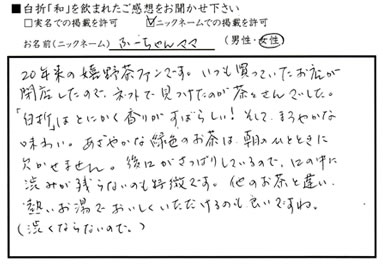 ■白折「和」を飲まれたご感想をお聞かせ下さい
□実名での掲載を許可 ☑ニックネームでの掲載を許可
お名前(ニックネーム) ふーちゃんママ (男性・女性)
20年来の嬉野茶ファンです。いつも買っていたお店が
閉店したので、ネットで見つけたのが茶々さんでした。
「白折」はとにかく香りがすばらしい!そして、まろやかな
味わい。あざやかな緑色のお茶は、朝のひとときに
欠かせません。後口がさっぱりしているので、口の中に
渋みが残らないのも特徴です。他のお茶と違い、
熱いお湯でおいしくいただけるのも良いですね。
(渋くならないので。)